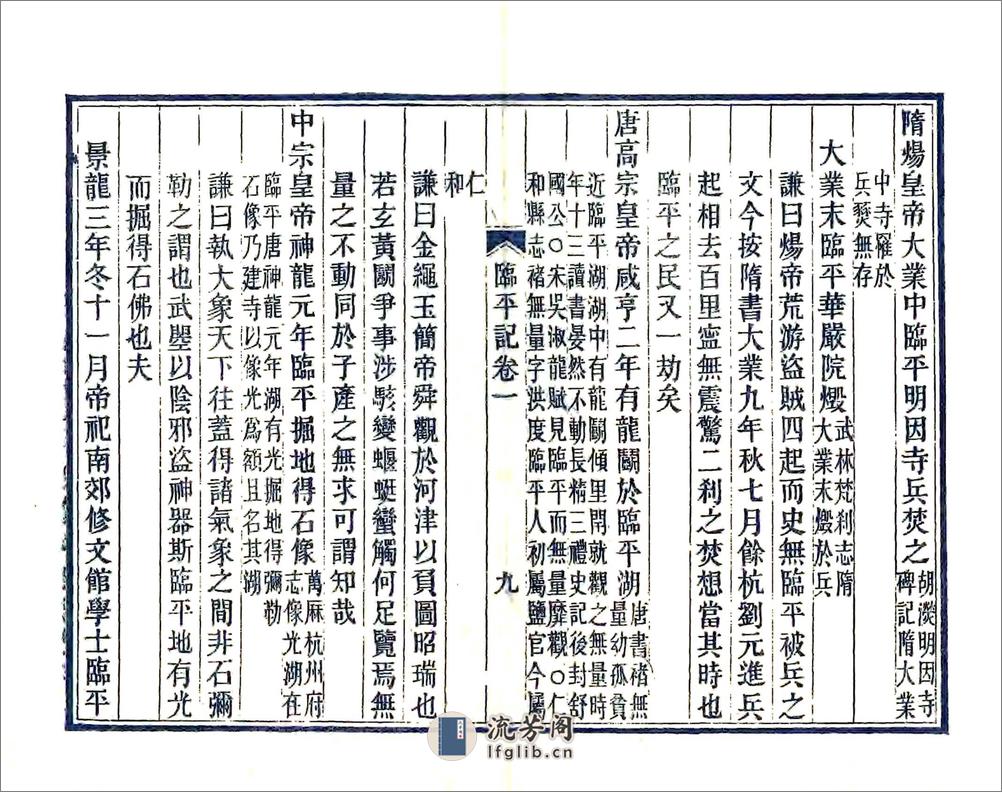 隋煬皇帝大業中臨平明因寺兵焚之胡濙明因寺碑記隋大業
中寺罹於兵燹無存
大業末臨平華嚴院燬武林梵刹志隋大業末燬於兵
謙曰煬帝荒游盜賊四起而史無臨平被兵之
文今按隋書大業九年秋七月餘杭劉元進兵
起相去百里寍無震驚二刹之焚想當其時也
臨平之民又一劫矣
唐高宗皇帝咸亨二年有龍鬭於臨平湖唐書褚無量幼孤貧
近臨平湖湖中有龍鬭傾里閈就觀之無量時年十三讀書晏然不動長精三禮史記後封舒
國公〇宋吳淑龍賦見臨平而無量靡觀〇仁和縣志褚無量字洪度臨平人初屬鹽官今屬
臨平記卷一
九
仁和
謙曰金繩玉簡帝舜觀於河津以負圖昭瑞也
若玄黃鬭爭事涉駭變蝘蜓蠻觸何足覽焉無
量之不動同於子產之無求可謂知哉
中宗皇帝神龍元年臨平掘地得石像萬厤杭州府志像光湖在
臨平唐神龍元年湖有光掘地得彌勒石像乃建寺以像光爲額且名其湖
謙曰執大象天下往蓋得諸氣象之間非石彌
勒之謂也武曌以陰邪盜神器斯臨平地有光
而掘得石佛也夫
景龍三年冬十一月帝祀南郊修文館學士臨平
流芳阁
lfglib.cn